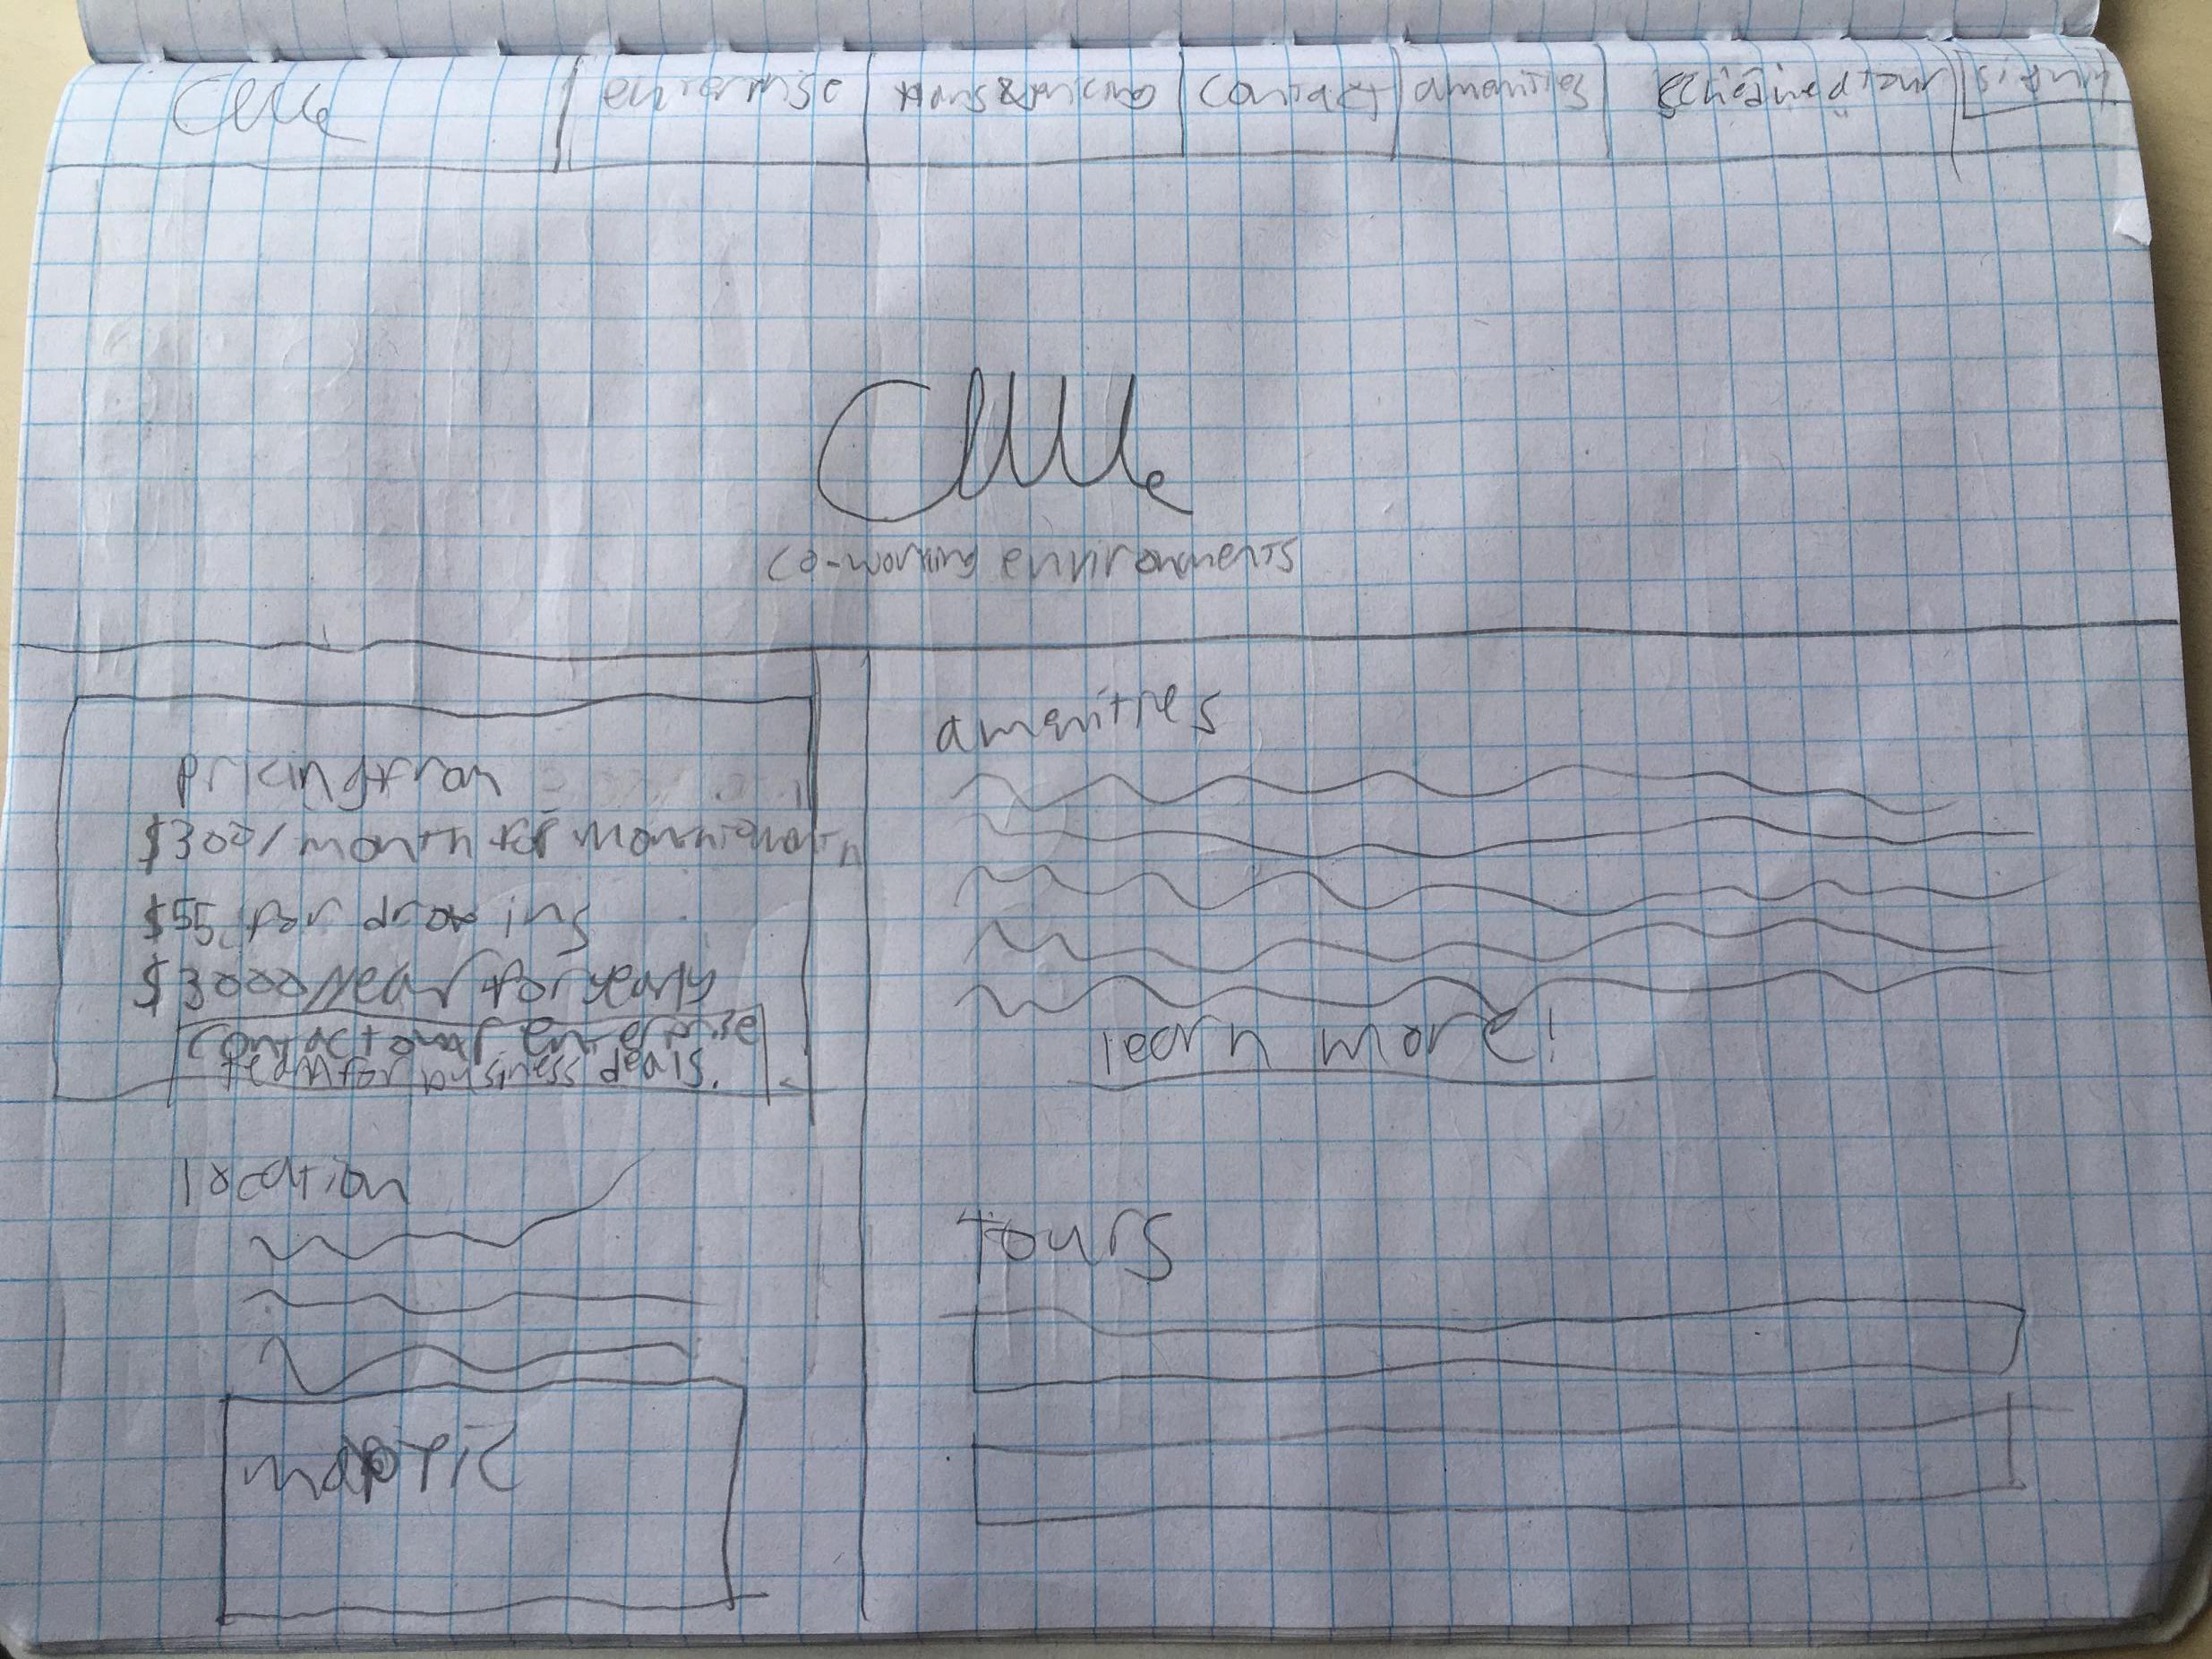 enterprise
plans & pricing
contact
amenities
schedule a tour
sign in
co-working environments
pricing
$300/month for month
$55 for drop ins
$3000/year for yearly
contact our enterprise
team for business deals.
location
map pic
amenities
learn more!
tours